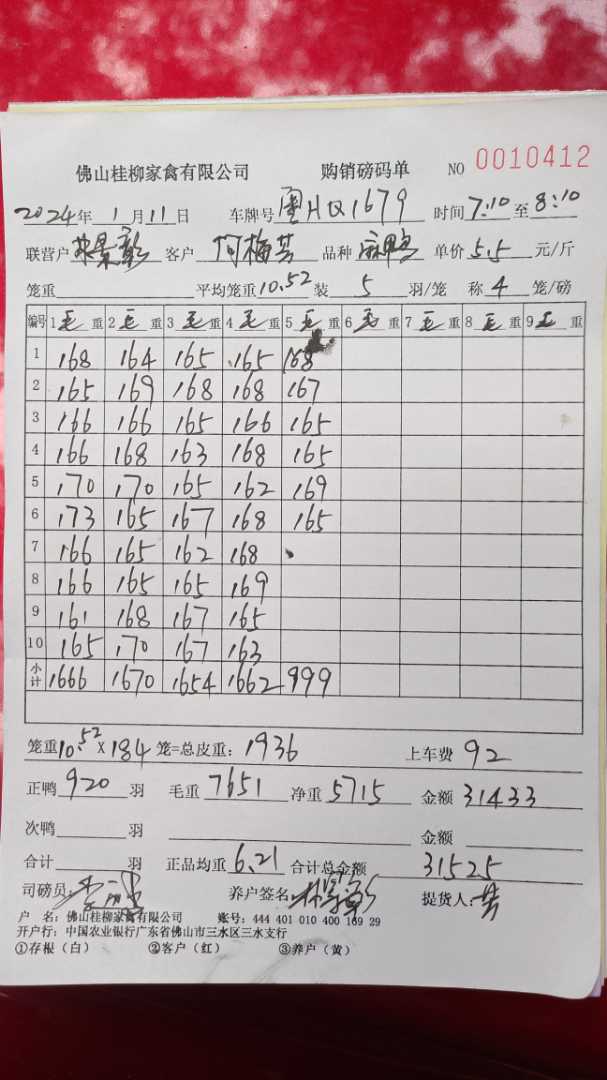 佛山桂柳家禽有限公司 购销磅码单 NO 0010412
2024年 1月 11日 车牌号 HQ1679 时间 7:10 至 8:10
联营户 客户 何梅芳 品种 麻鸭 单价 5.5 元/斤
笼重 平均笼重 10.52 装 5 羽/笼 称 4 笼/磅
编号 1 毛 重 2 毛 重 3 毛 重 4 毛 重 5 毛 重 6 毛 重 7 毛 重 8 毛 重 9 毛 重
1 168 164 165 165 168
2 165 169 168 168 167
3 166 166 165 166 165
4 166 168 163 168 165
5 170 170 165 162 169
6 173 165 167 168 165
7 166 165 162 168
8 166 165 165 169
9 161 168 167 165
10 165 170 167 163
小计 1666 1670 1654 1662 999
笼重 10.52 × 184 笼=总皮重: 1936 上车费 92
正鸭 920 羽 毛重 7651 净重 5715 金额 31433
次鸭 羽 金额
合计 羽 正品均重 6.21 合计总金额 31525
司磅员: 养户签名: 提货人:
户 名: 佛山桂柳家禽有限公司 账号: 444 401 010 400 169 29
开户行: 中国农业银行广东省佛山市三水区三水支行
①存根(白) ②客户(红) ③养户(黄)